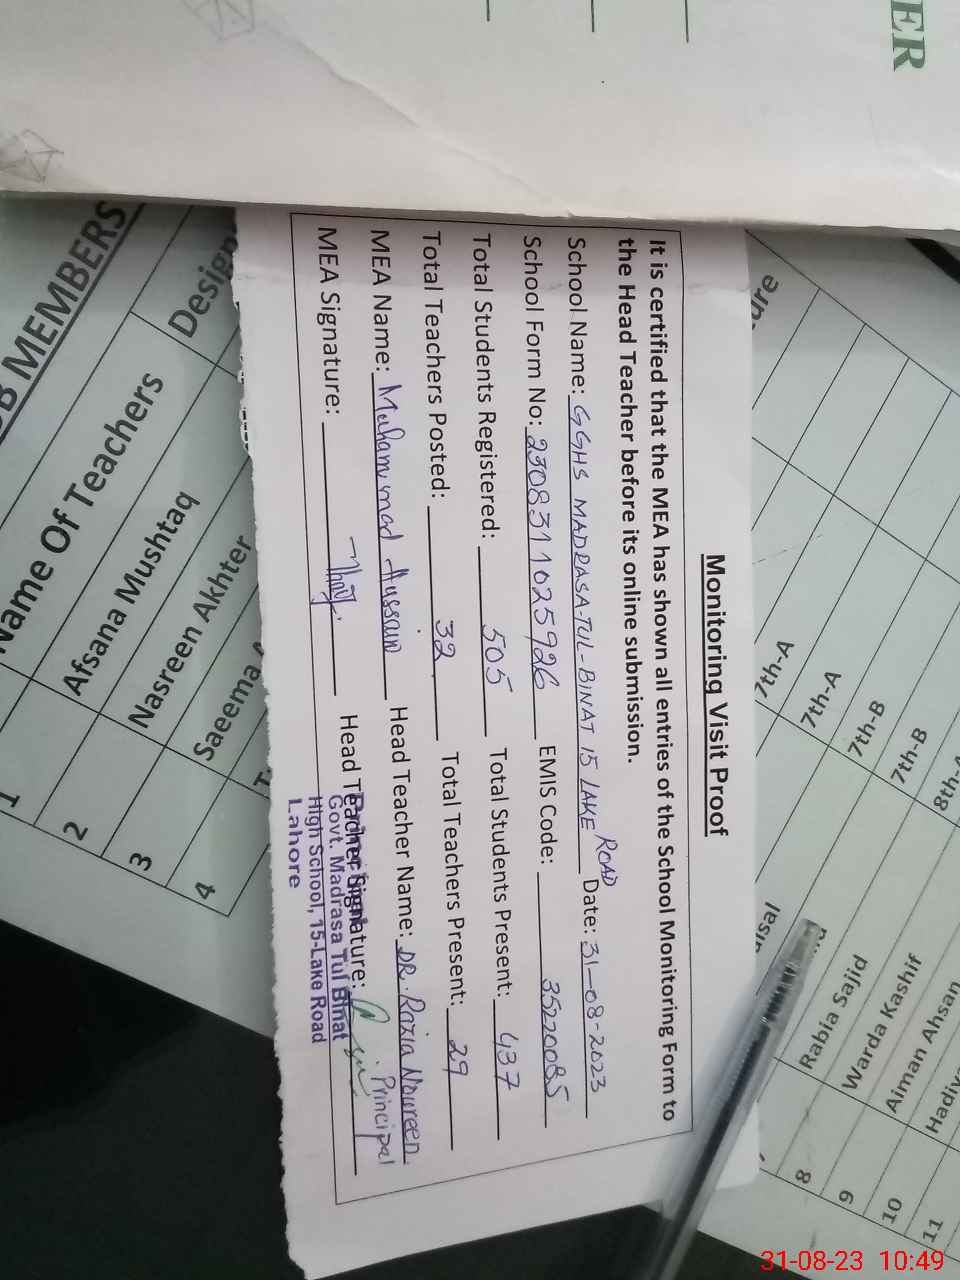 Monitoring Visit Proof
It is certified that the MEA has shown all entries of the School Monitoring Form to
the Head Teacher before its online submission.
School Name: GGHS MADRASA-TUL-BINAT 15 LAKE ROAD Date: 31-08-2023
School Form No: 2308311025926 EMIS Code: 35220085
Total Students Registered: 505 Total Students Present: 437
Total Teachers Posted: 32 Total Teachers Present: 29
MEA Name: Muhammad Hussain Head Teacher Name: DR. Razia Noureen
MEA Signature: Head Teacher Signature: Principal
Govt. Madrasa Tul Binat
High School, 15-Lake Road
Lahore
ER
MEMBERS
Name Of Teachers
Design
1
2 Afsana Mushtaq
3 Nasreen Akhter
4 Saeema
7th-A
7th-A
7th-B
7th-B
8th-
8 Rabia Sajid
9 Warda Kashif
10 Aiman Ahsan
11 Hadiy
31-08-23 10:49